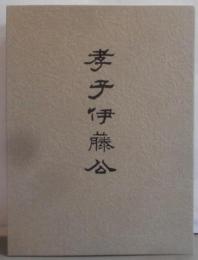 孝子伊藤公